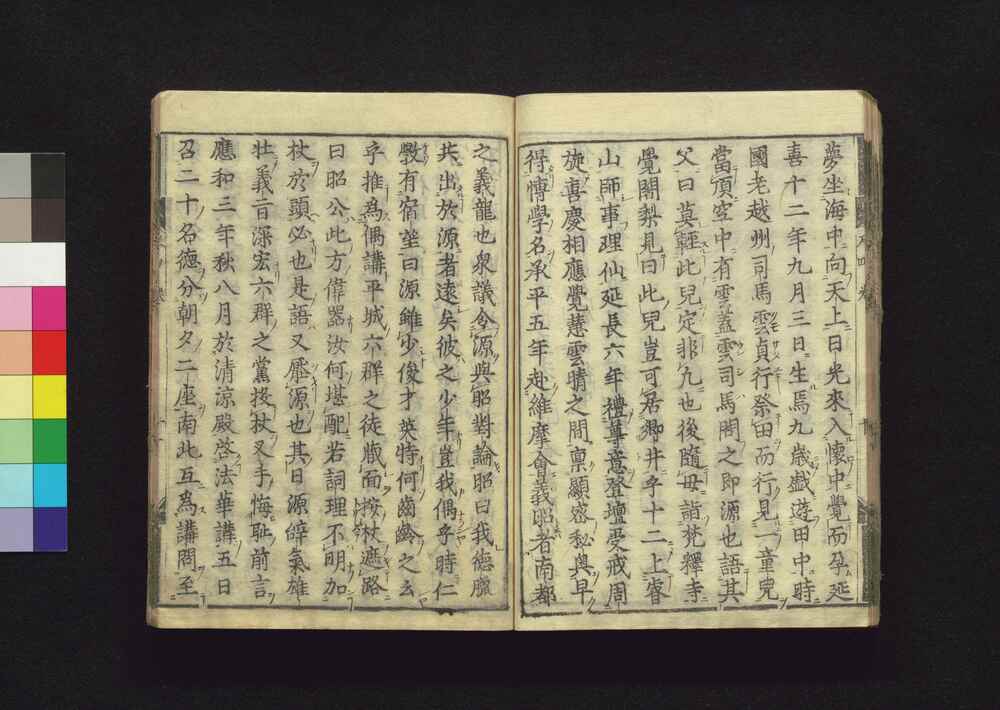 夢坐海中向天上日光來入懷中覺而孕延
喜十二年九月三日生焉九歳戲遊田中時
國老越州司馬雲貞行祭田而行見一童兒
當頂空中有雲蓋雲司馬問之即源也語其
父曰莫輕此兒定非凡也後隨母詣梵釋寺
覺闍梨見曰此兒豈可居卿井乎十二上睿
山師事理仙延長六年禮尊意登壇受戒周
旋喜慶相應覺慧雲晴之間禀顯密秘奥早
得博學名承平五年赴維摩會義昭者南都
之義龍也泉議令源與昭對論昭曰我德臘
共出於源者遠矣彼之少年豈我偶乎時仁
斅有宿望曰源雖少俊才英特何齒齡之云
乎推為偶講平城六群之徒裁面按杖遮路
曰昭公此方偉器汝何堪配若詞理不明加
杖於頭必也是語又壓源也其日源辭氣雄
壮義音深宏六群之黨投杖叉手悔耻前言
應和三年秋八月於清涼殿啓法華講五日
召二十名德分朝夕二座南北互為講問至